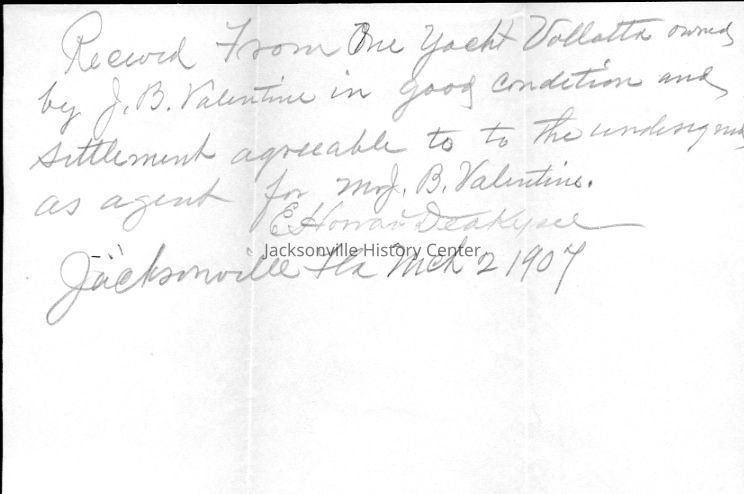 Recievd From One Yacht Vollatta owned
by J. B. Valentine in good condition and
settlement agreeable to to the undersigned
as agent for Mr J. B. Valentine.
E Howar
Jacksonville History Center
Jacksonville Fla Mch 2 1907